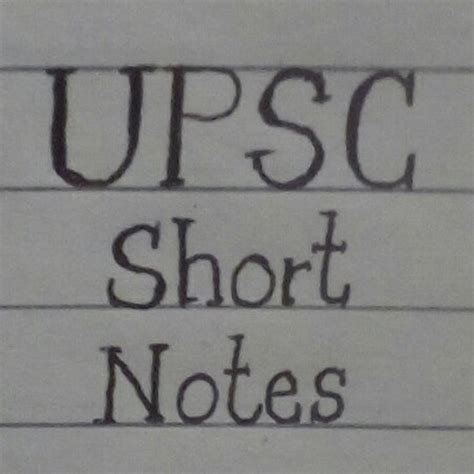 UPSC
Short
Notes